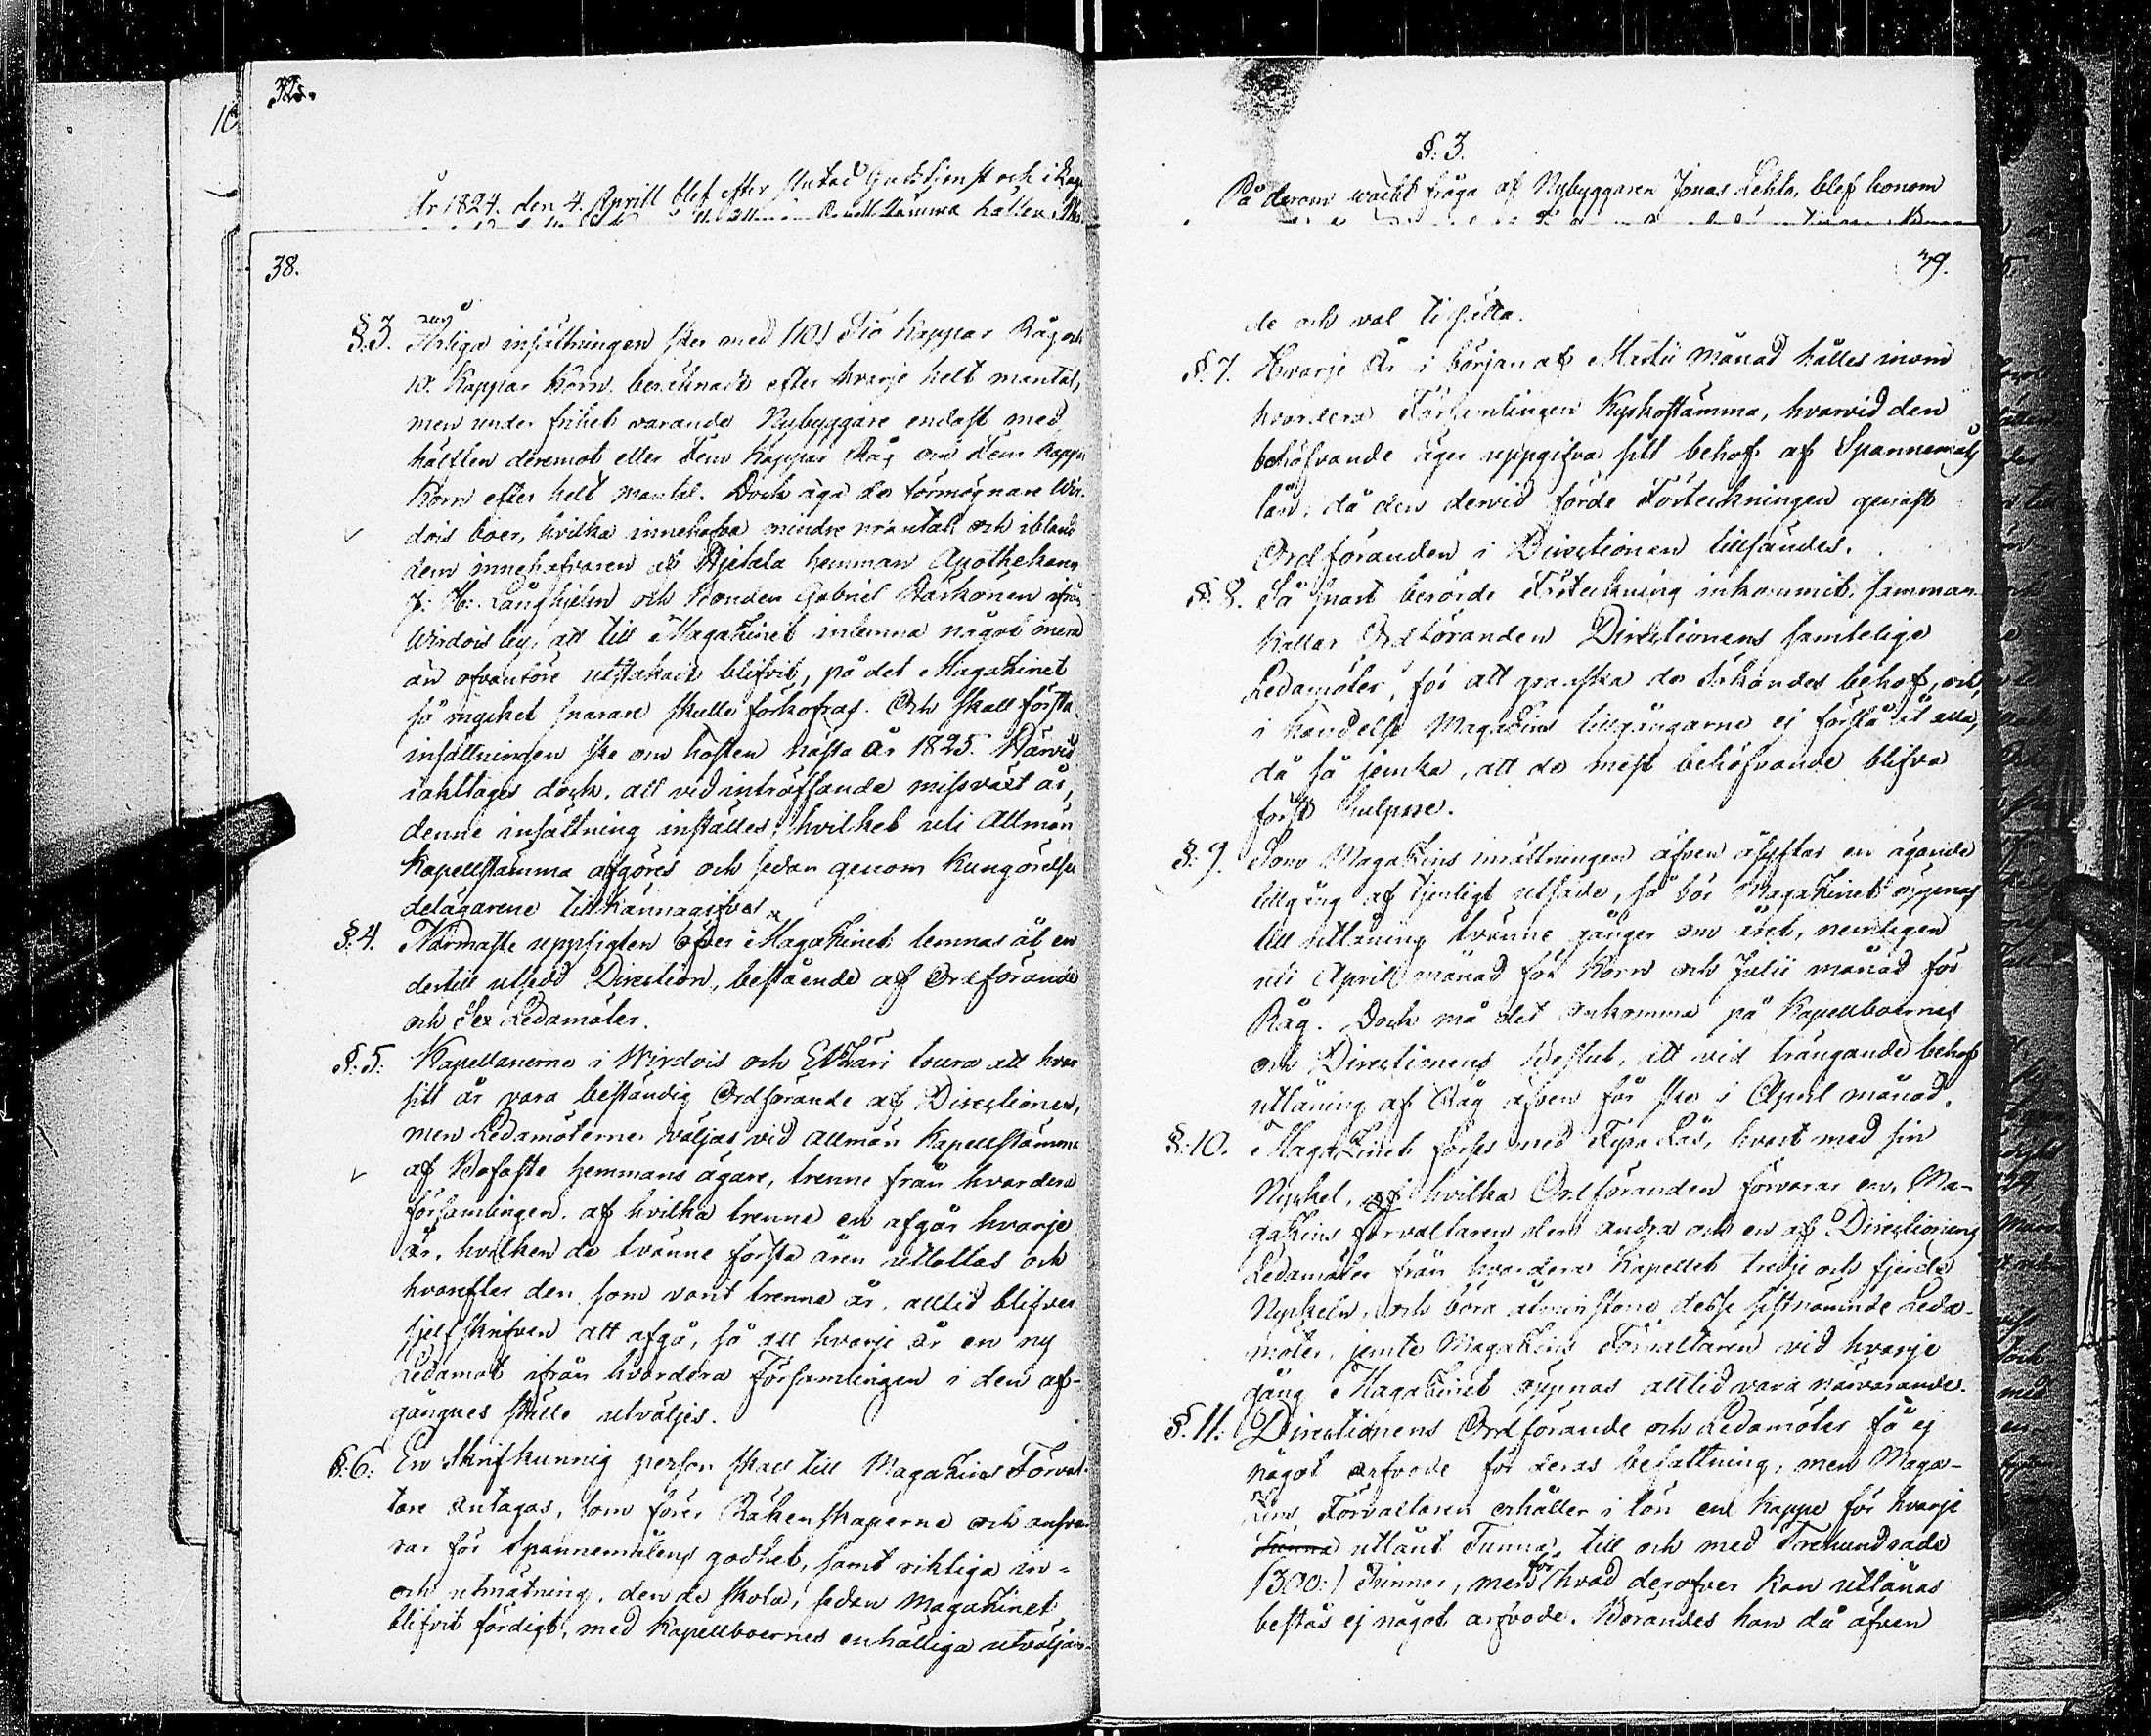 32.
År 1824. den 4. Aprill blef efter slutad Gudstjenst och i
38.
§.3. Årliga insättningen sker med /10/ Tio Kappar Råg och
10. Kappar Korn beräknadt efter hvarje helt mantal,
men under frihet varande Nybyggare endast med
hälften deremot eller Fem Kappar Råg och Fem Kappar
Korn efter helt mantal. Dock äga de förmögnare Wir-
dois boer, hvilka innehafva mindre mantal och ibland
dem innehafvaren af Hjetala hemman Apothekaren
J: H: Långhjelm och Bonden Gabriel Härkönen ifrån
Wirdois by, att till Magazinet inlemna något mera
än ofvanföre utstakadt blifvit, på det Magazinet
så mycket snarare skulle förkofras. Och skall första
insättningen ske om hösten nästa År 1825. Härvid
iakttages dock, att vid inträffande missvext år,
denne insättning inställes, hvilket uti Allmän
Kapellstämma afgöres och sedan genom Kungörelse
delägarene tillkännagifves.
§.4. Närmaste uppsigten öfver Magazinet lemnas åt en
dertill utsedd Direction, bestående af Ordförande
och Sex Ledamöter.
§.5. Kapellanerne i Wirdois och Etzäri toura att hvar
sitt år vara beständig Ordförande af Directionen,
men Ledamöterne väljas vid allmän Kapellstämma
af Bofaste hemmans ägare, trenne från hvardera
församlingen, af hvilka trenne en afgår hvarje
år, hvilken de tvänne första åren utlottas och
hvarefter den som varit trenne år, alltid blifver
sjelfskrifven att afgå, så att hvarje år en ny
Ledamot ifrån hvardera Församlingen i den af-
gångnes ställe utväljes.
§.6: En Skrifkunnig person skall till Magazins Förval-
tare antagas, som förer Räkenskaperne och ansva-
rar för Spannemålens godhet, samt riktiga in-
och utmätning, den de skola, sedan Magazinet
blifvit färdigt, med Kapellboernes enhälliga utväljan-
§.3.
På derom väckt fråga af Nybyggaren Jonas Lehto, blef honom
39.
de och val tillsätta.
§.7. Hvarje År i början af Martii månad hålles inom
hvardera Församlingen Kyrkostämma, hvarvid den
behöfvande äger uppgifva sitt behof af Spannemåls
lån, då den dervid förde Förteckningen genast
Ordföranden i Directionen tillsändes.
§.8. Så snart berörde Förteckning inkommit, samman-
kallar Ordföranden Directionens samtelige
Ledamöter, för att granska de Sökandes behof, och,
i händelse Magazins tillgångarne ej förslå åt alla,
då så jemka, att de mest behöfvande blifva
först hulpne.
§.9. Som Magazins inrättningen äfven åsyftar en ägande
tillgång af tjenligt utsäde, så bör Magazinet öppnas
till utlåning tvänne gånger om året, nemligen
uti Aprill månad för Korn och Julii månad för
Råg. Dock må det ankomma på Kapellboernes
och Directionens Beslut, att vid trängande behof
utlåning af Råg äfven får ske i April månad.
§.10. Magazinet förses med Fyra Lås, hvart med sin
Nyckel, af hvilka Ordföranden förvarar en, Ma-
gazins förvaltaren den andra och en af Directionens
Ledamöter från hvardera Kapellet tredje och fjerde
Nyckeln, och böra åtminstone desse sistnämnde Leda-
möter, jemte Magazins Förvaltaren vid hvarje
gång Magazinet öppnas alltid vara närvarande.
§.11. Directionens Ordförande och Ledamöter få ej
något arfvode för deras befattning, men Maga-
zins Förvaltaren erhåller i lön en Kappe för hvarje
Tunna utlånt Tunna, till och med Trehundrade
/300:/ Tunnor, men för hvad derofver kan utlånas
bestås ej något arfvode. Börandes han då äfven